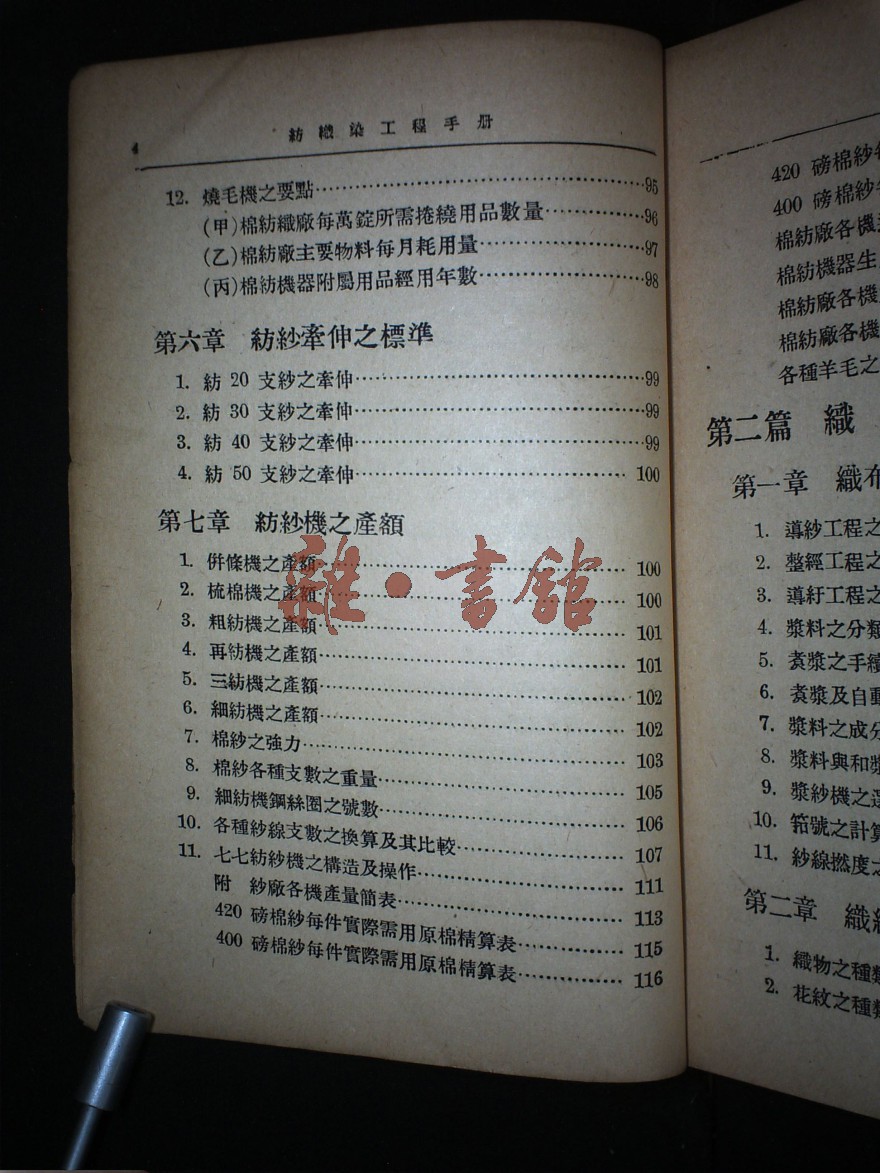 4
紡織染工程手册
12. 燒毛機之要點……95
(甲)棉紡織廠每萬錠所需捲繞用品數量……96
(乙)棉紡廠主要物料每月耗用量……97
(丙)棉紡機器附屬用品經用年數……98
第六章 紡紗牽伸之標準
1. 紡 20 支紗之牽伸……99
2. 紡 30 支紗之牽伸……99
3. 紡 40 支紗之牽伸……99
4. 紡 50 支紗之牽伸……100
第七章 紡紗機之產額
1. 併條機之產額……100
2. 梳棉機之產額……100
3. 粗紡機之產額……101
4. 再紡機之產額……101
5. 三紡機之產額……102
6. 細紡機之產額……102
7. 棉紗之強力……103
8. 棉紗各種支數之重量……105
9. 細紡機鋼絲圈之號數……106
10. 各種紗線支數之換算及其比較……107
11. 七七紡紗機之構造及操作……111
附 紗廠各機產量簡表……113
420 磅棉紗每件實際需用原棉精算表……115
400 磅棉紗每件實際需用原棉精算表……116
雜·書館
420 磅棉紗每
400 磅棉紗每
棉紡廠各機
棉紡機器生
棉紡廠各機
棉紡廠各機
各種羊毛之
第二篇 織
第一章 織布
1. 導紗工程之
2. 整經工程之
3. 導紆工程之
4. 漿料之分類
5. 煑漿之手續
6. 煑漿及自動
7. 漿料之成分
8. 漿料與和漿
9. 漿紗機之
10. 筘號之計算
11. 紗線撚度之
第二章 織
1. 織物之種類
2. 花紋之種類